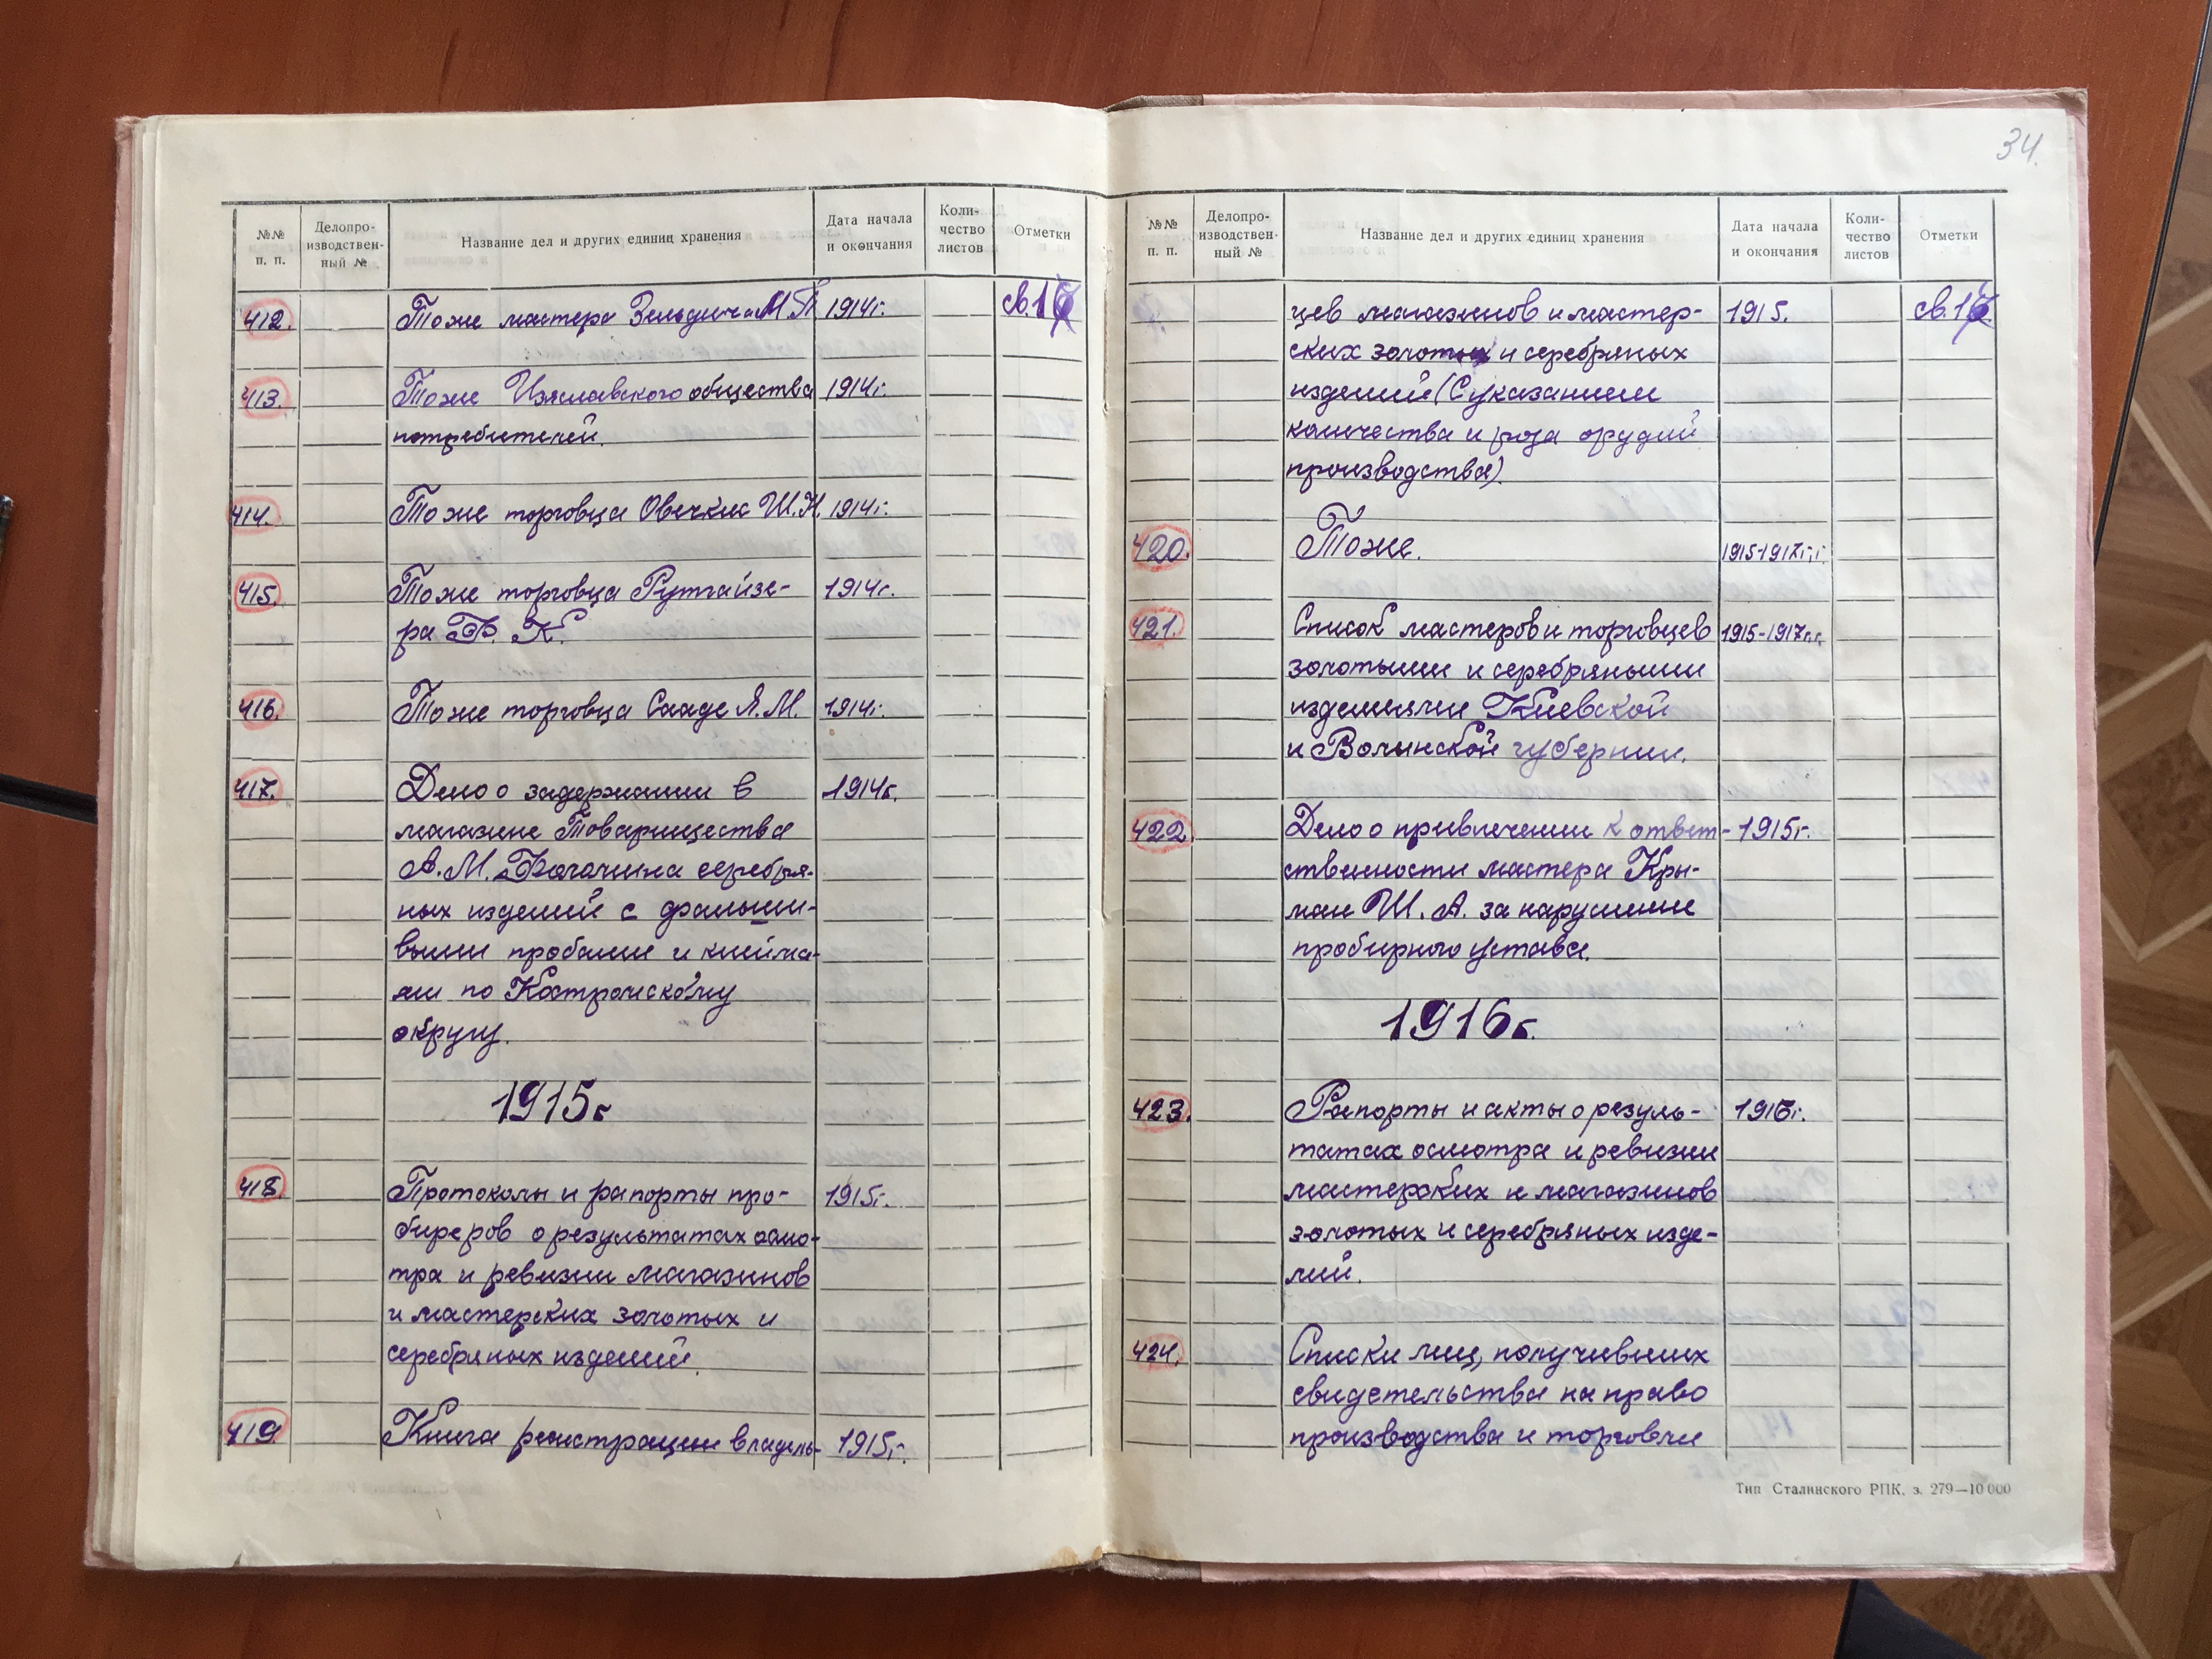 №№ п. п. Делопроизводственный № Название дел и других единиц хранения Дата начала и окончания Количество листов Отметки
412. Тоже мастера Зельдича М.П. 1914г. св.1
413. Тоже Изяславского общества 1914г.
потребителей.
414. Тоже торговца Овечкис Ш.Н. 1914г.
415. Тоже торговца Рутгайзе- 1914г.
ра Ф. К.
416. Тоже торговца Сааде Я.М. 1914г.
417. Дело о задержании в 1914г.
магазине Товарищества
А.М. серебря-
ных изделий с фальши-
выми пробами и клейма-
ми по Костромскому
округу.
1915г
418. Протоколы и рапорты про- 1915г.
биреров о результатах осмо-
тра и ревизии магазинов
и мастерских золотых и
серебряных изделий.
419. Книга регистрации владель- 1915г.
34.
№№ п. п. Делопроизводственный № Название дел и других единиц хранения Дата начала и окончания Количество листов Отметки
цев магазинов и мастер- 1915. св.1
ских золотых и серебряных
изделий (С указанием
количества и рода орудий
производства).
420. Тоже. 1915-1917г.г.
421. Список мастеров и торговцев 1915-1917г.г.
золотыми и серебряными
изделиями Киевской
и Волынской губернии.
422. Дело о привлечении к ответ- 1915г.
ственности мастера Кры-
ман Ш. А. за нарушение
пробирного устава.
1916г.
423. Рапорты и акты о резуль- 1916г.
татах осмотра и ревизии
мастерских и магазинов
золотых и серебряных изде-
лий.
424. Списки лиц, получивших
свидетельства на право
производства и торговли
Тип Сталинского РПК, з. 279—10 000